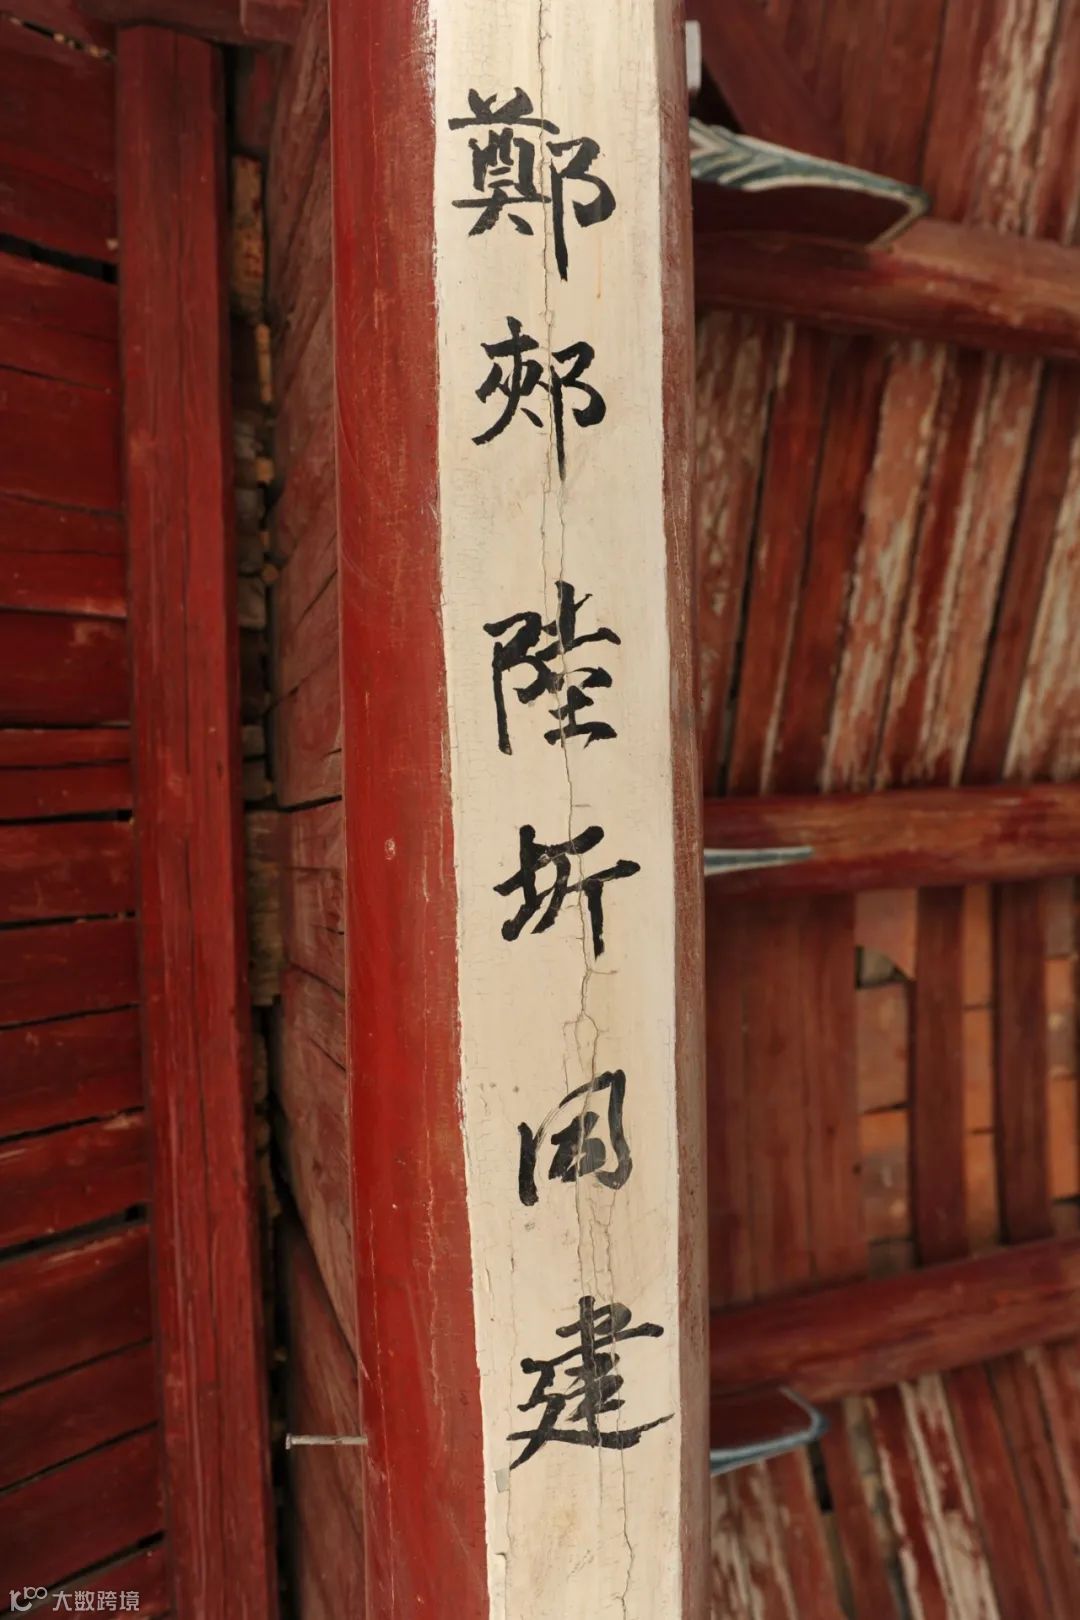 鄭郟陸圻同建
大数跨境